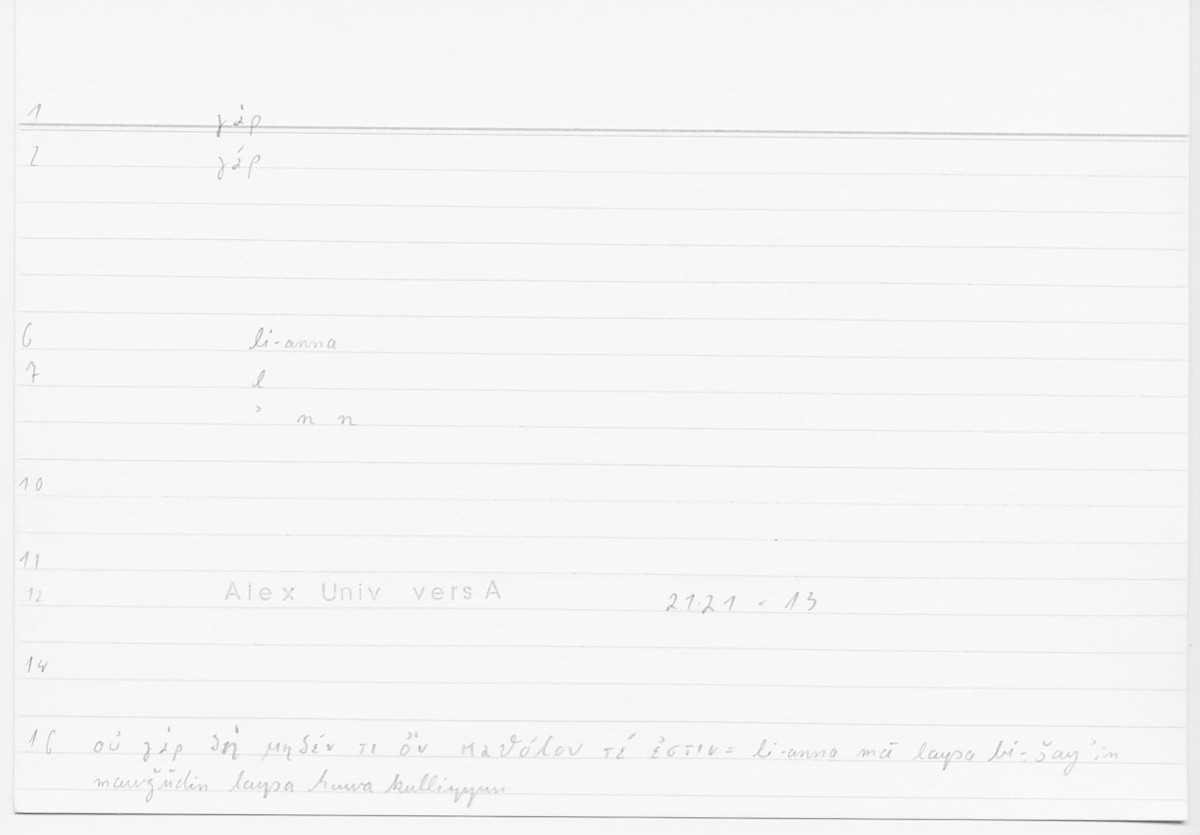 1 γὰρ
2 γάρ
6 li-anna
7 l
ʾ n n
10
11
12 Alex Univ vers A 21.21 - 13
14
16 οὐ γὰρ δὴ μηδέν τι ὂν καθόλου τέ ἐστιν = li-anna mā laysa bi-šayʾin
mawǧūdin laysa huwa kulliyyun